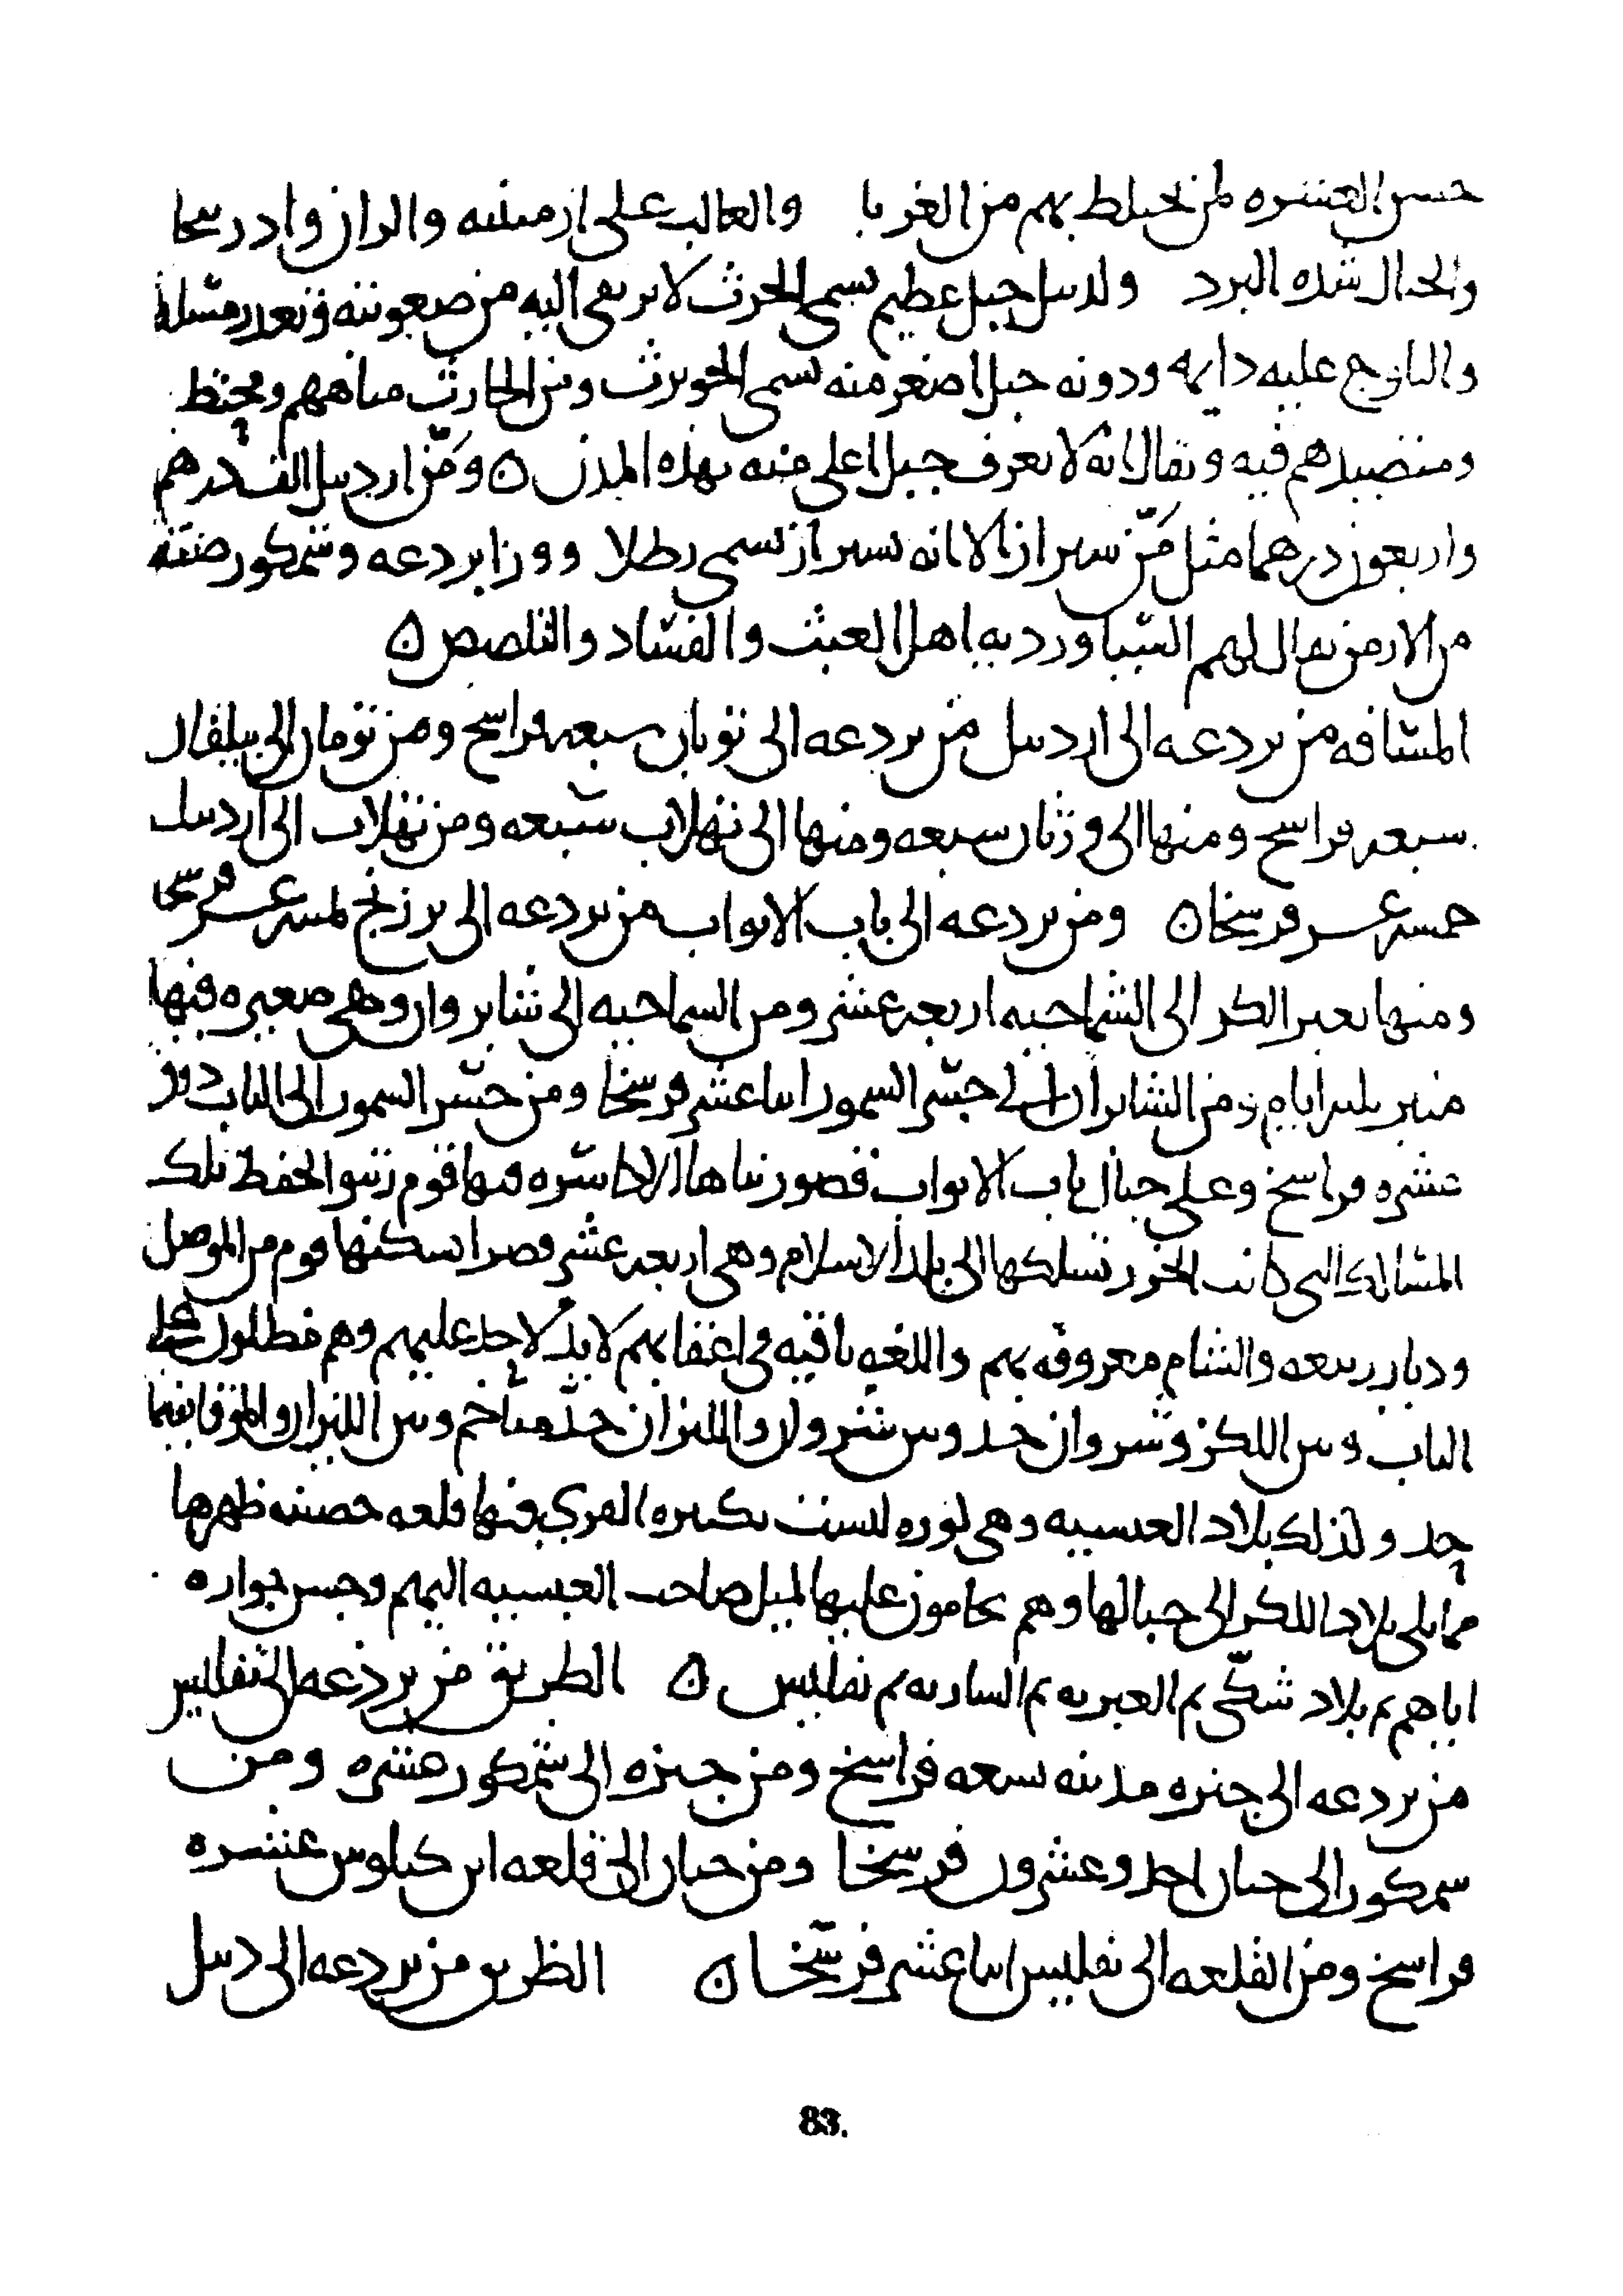 حسن العشره لمن يختلط بهم من الغربا والغالب على ارمينيه والران وادربيجا
والجبال شده البرد ولدبيل جبل عظيم يسمى الحرث لا يرتقى اليه من صعوبته وتعدر مسلكه
والثلوج عليه دايمه ودونه جبل اصغر منه يسمى الحويرث ومن الحارث مياههم ومحتطبهم
ومتصيدهم فيه ويقال انه لا يعرف جبل اعلى منه بهذه المدن ومَنّ اردبيل الف درهم
واربعون درهما مثل مَنّ شيراز الا انه بشيراز يسمى رطلا ووزا بردعه وشمكور صنف
من الارمن يقال لهم السياورديه اهل العبث والفساد والتلصص
المسافه من بردعه الى اردبيل من بردعه الى يونان سبعه فراسخ ومن يونان الى بيلقان
سبعه فراسخ ومنها الى ورثان سبعه ومنها الى بلخاب سبعه ومن بلخاب الى اردبيل
خمسه عشر فرسخا ومن بردعه الى باب الابواب من بردعه الى برزنج ثمنيه عشر فرسخا
ومنها يعبر الكر الى الشماخيه اربعه عشر ومن الشماخيه الى شابروان وهي صغيره فيها
منبر ثلثه ايام ومن الشابران الى جسر السمور اثنا عشر فرسخا ومن جسر السمور الى الباب دون
عشره فراسخ وعلى جبال باب الابواب قصور بناها الاكاسره فيها قوم رتبوا لحفظ تلك
المسالك التي كانت الخزر تسلكها الى بلد الاسلام وهي اربعه عشر قصرا يسكنها قوم من الموصل
وديار ربيعه والشام معروفه بهم واللغه باقيه في اعقابهم لا يد لاحد عليهم وهم مطلون على
الباب وبين اللكز وشروان حد وبين شروان والليزان حد متاخم وبين الليزان والموقانيه
حد وكذلك بلاد العبسيه وهي كوره ليست بكبيره القرى فيها قلعه حصينه ظهرها
مما يلي بلاد اللكز الى جبالها وهم يحامون عليها لميل صاحب العبسيه اليهم وحسن جواره
اياهم ثم بلاد شكّي ثم العبريه ثم الساريه ثم تفليس الطريق من بردعه الى تفليس
من بردعه الى جنزه مدينه تسعه فراسخ ومن جنزه الى شمكور عشره ومن
شمكور الى خنان احد وعشرون فرسخا ومن خنان الى قلعه ابن كيلوس عشره
فراسخ ومن القلعه الى تفليس اثنا عشر فرسخا الطريق من بردعه الى دبيل
83.